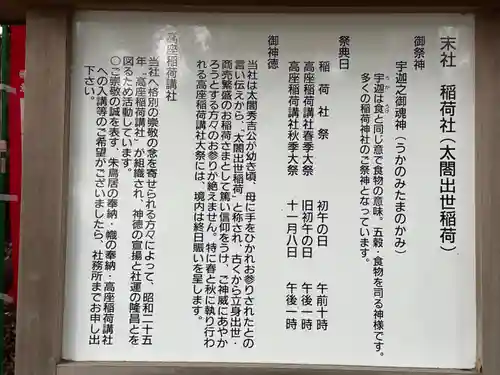 末社 稲荷社（太閤出世稲荷）
御祭神
宇迦之御魂神（うかのみたまのかみ）
宇迦は食と同じ意で食物の意味。五穀・食物を司る神様です。
多くの稲荷神社のご祭神となっています。
祭典日
稲荷社祭 初午の日 午前十時
高座稲荷講社春季大祭 旧初午の日 午後一時
高座稲荷講社秋季大祭 十一月八日 午後一時
御神徳
当社は太閤秀吉公が幼き頃、母に手をひかれお参りされたとの
言い伝えから、“太閤出世稲荷”と称され、古くから立身出世・
商売繁盛のお稲荷さまとして篤い信仰をうけ、ご神威にあやか
ろうとする方々のお参りが絶えません。特に春と秋に執り行わ
れる高座稲荷講社大祭には、境内は終日賑いを呈します。
高座稲荷講社
当社へ格別の崇敬の念を寄せられる方々によって、昭和二十五
年“高座稲荷講社”が組織され、神徳の宣揚と社運の隆昌とを
図るため活動しています。
○ご崇敬の誠を表す、朱鳥居の奉納・幟の奉納・高座稲荷講社
への入講等のご希望がございましたら、社務所までお申し出
下さい。